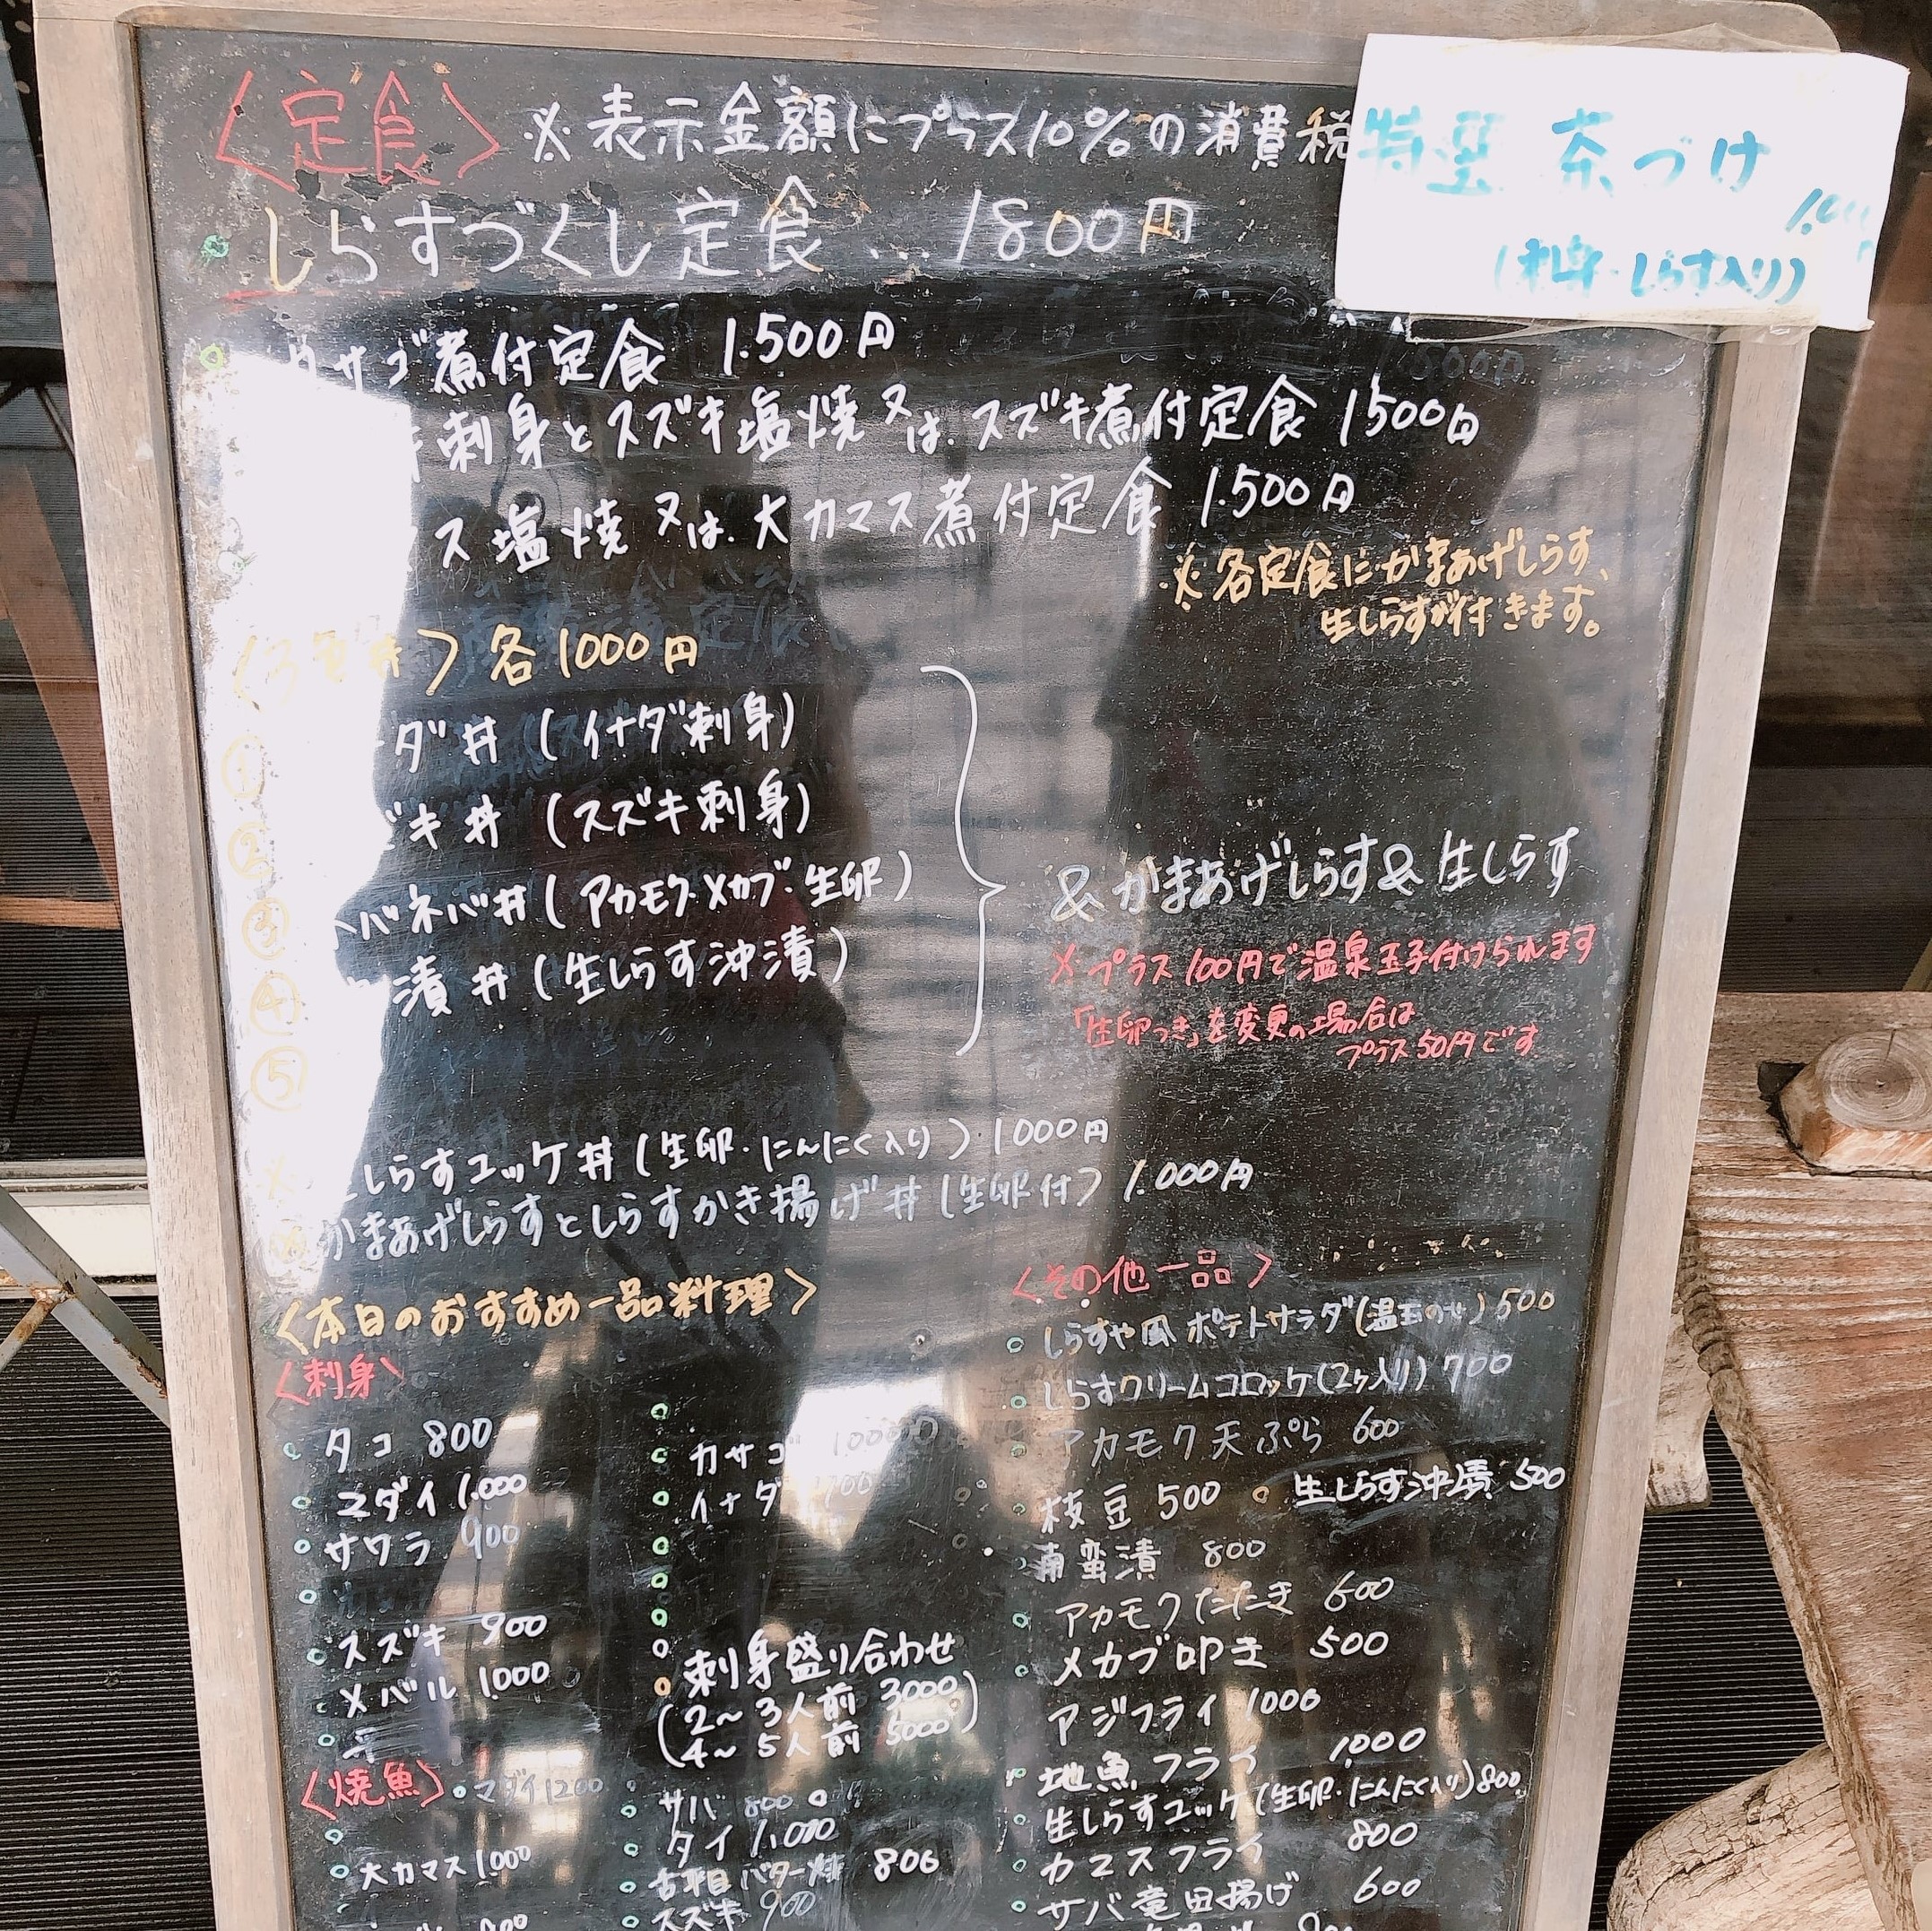 〈定食〉 ※表示金額にプラス10%の消費税
特製 茶づけ
(刺身・しらす入り)
しらすづくし定食 … 1800円
カサゴ煮付定食 1.500円
刺身とスズキ塩焼又は.スズキ煮付定食 1500円
ス塩焼又は.大カマス煮付定食 1.500円
※各定食にかまあげしらす、
生しらすが付きます。
〈3色丼〉各1000円
① ダ丼 (イナダ刺身)
② ズキ丼 (スズキ刺身)
③ バネバ丼 (アカモク・メカブ・生卵)
④ 漬丼 (生しらす沖漬)
⑤
&かまあげしらす&生しらす
※プラス100円で温泉玉子付けられます
「生卵つき」を変更の場合は
プラス50円です
※ しらすユッケ丼 (生卵・にんにく入り) 1000円
かまあげしらすとしらすかき揚げ丼 (生卵付) 1.000円
〈本日のおすすめ一品料理〉
〈刺身〉
タコ 800
マダイ 1.000
サワラ 900
スズキ 900
メバル 1000
カサゴ 1000
イナダ 700
刺身盛り合わせ
(2〜3人前 3000
4〜5人前 5000)
〈焼魚〉 マダイ 1200
大カマス 1.000
サバ 800
タイ 1.000
舌平目バター焼 800
スズキ 900
〈その他一品〉
しらすや風 ポテトサラダ(温玉のせ) 500
しらすクリームコロッケ(2ヶ入り) 700
アカモク天ぷら 600
枝豆 500 生しらす沖漬 500
南蛮漬 800
アカモクたたき 600
メカブ叩き 500
アジフライ 1000
地魚フライ 1000
生しらすユッケ(生卵・にんにく入り) 800
カマスフライ 800
サバ竜田揚げ 600